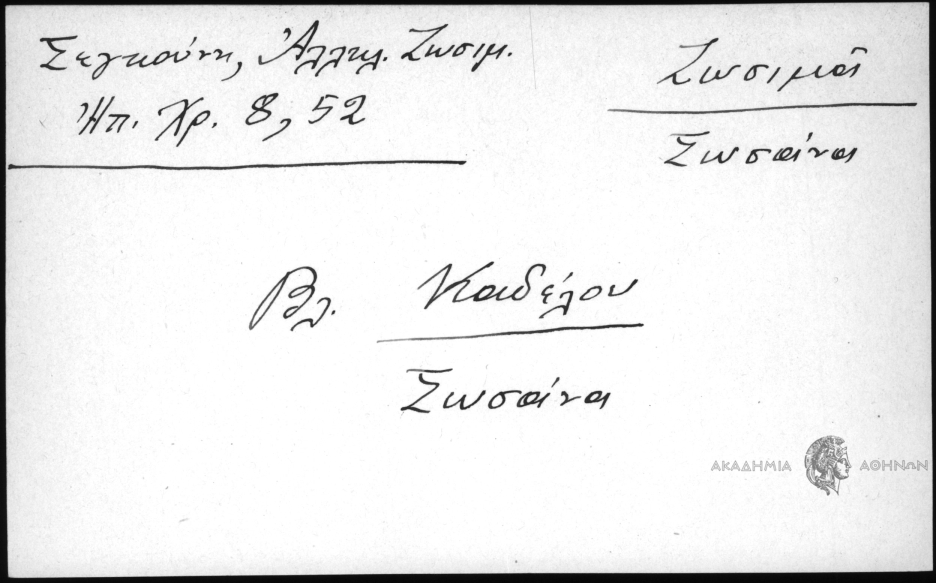 Σεγκούνη, Ἀλληλ. Ζωσιμ.
Ἠπ. Χρ. 8, 52
Ζωσιμᾶ
Ζωσαίνα
Βλ. Καδέλου
Ζωσαίνα
ΑΚΑΔΗΜΙΑ ΑΘΗΝΩΝ